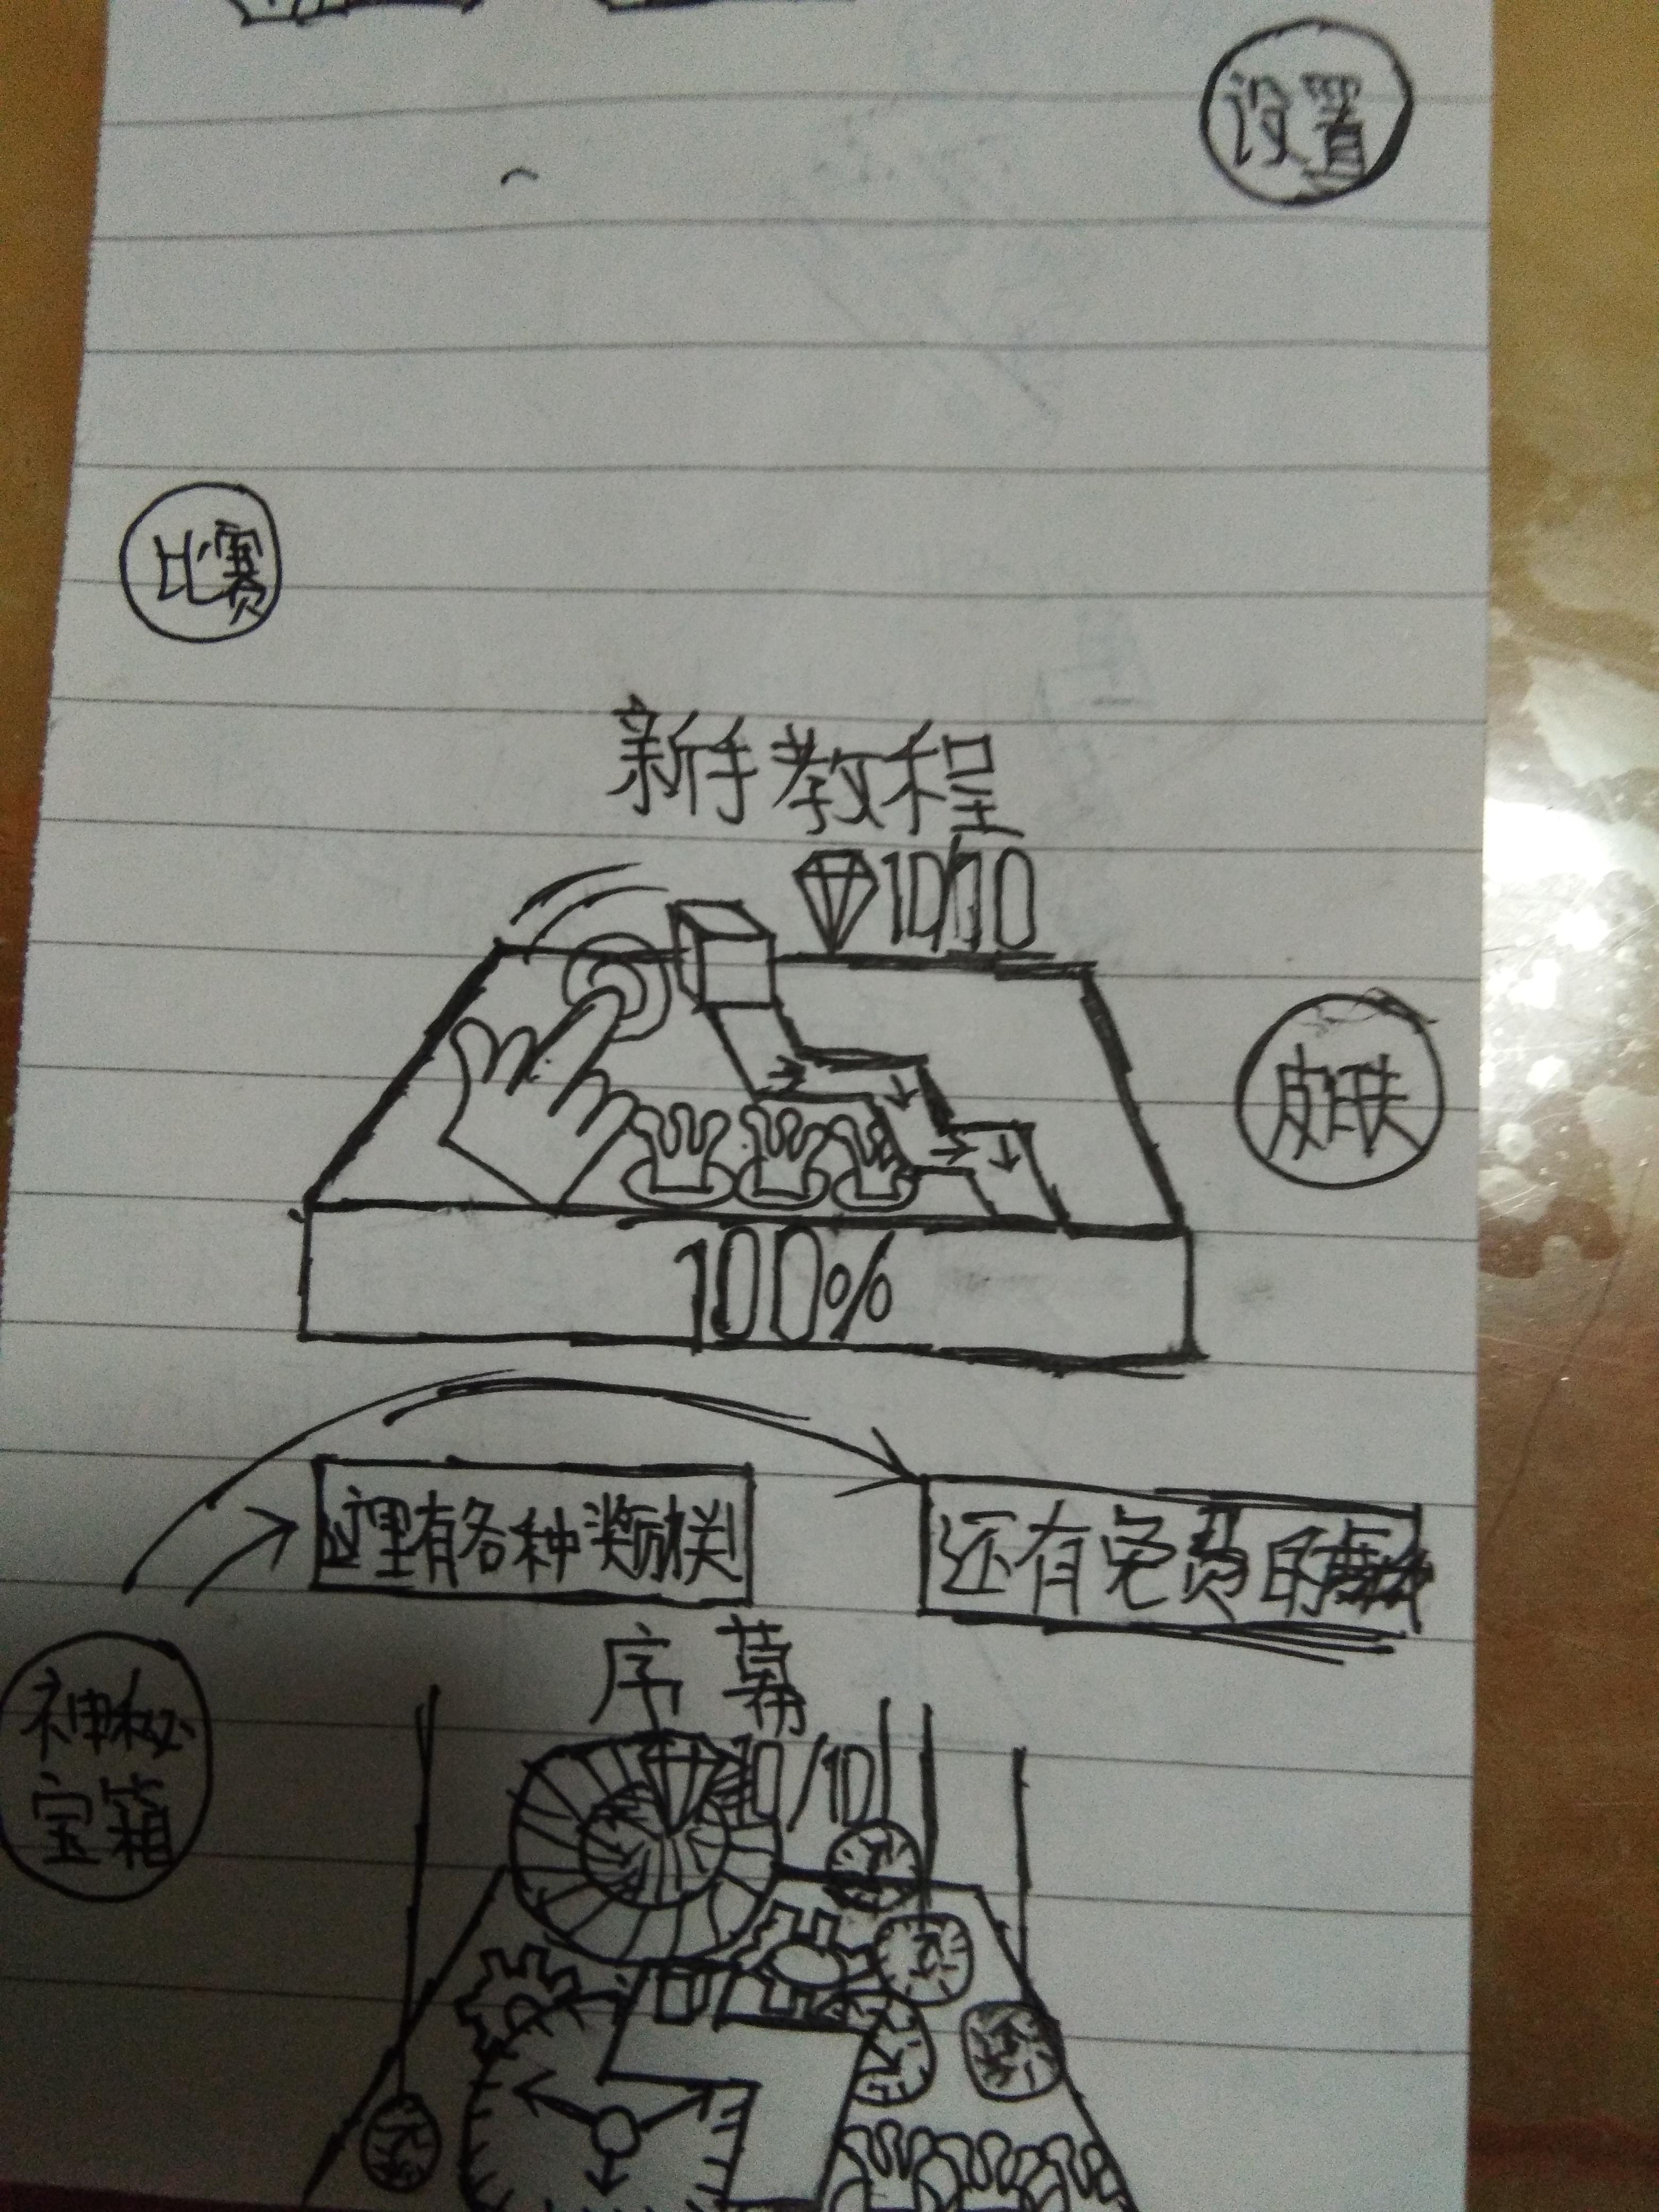 设置
比赛
新手教程
10/10
皮肤
100%
这里有各种奖励关
还有免费的
序幕
10/10
神秘
宝箱